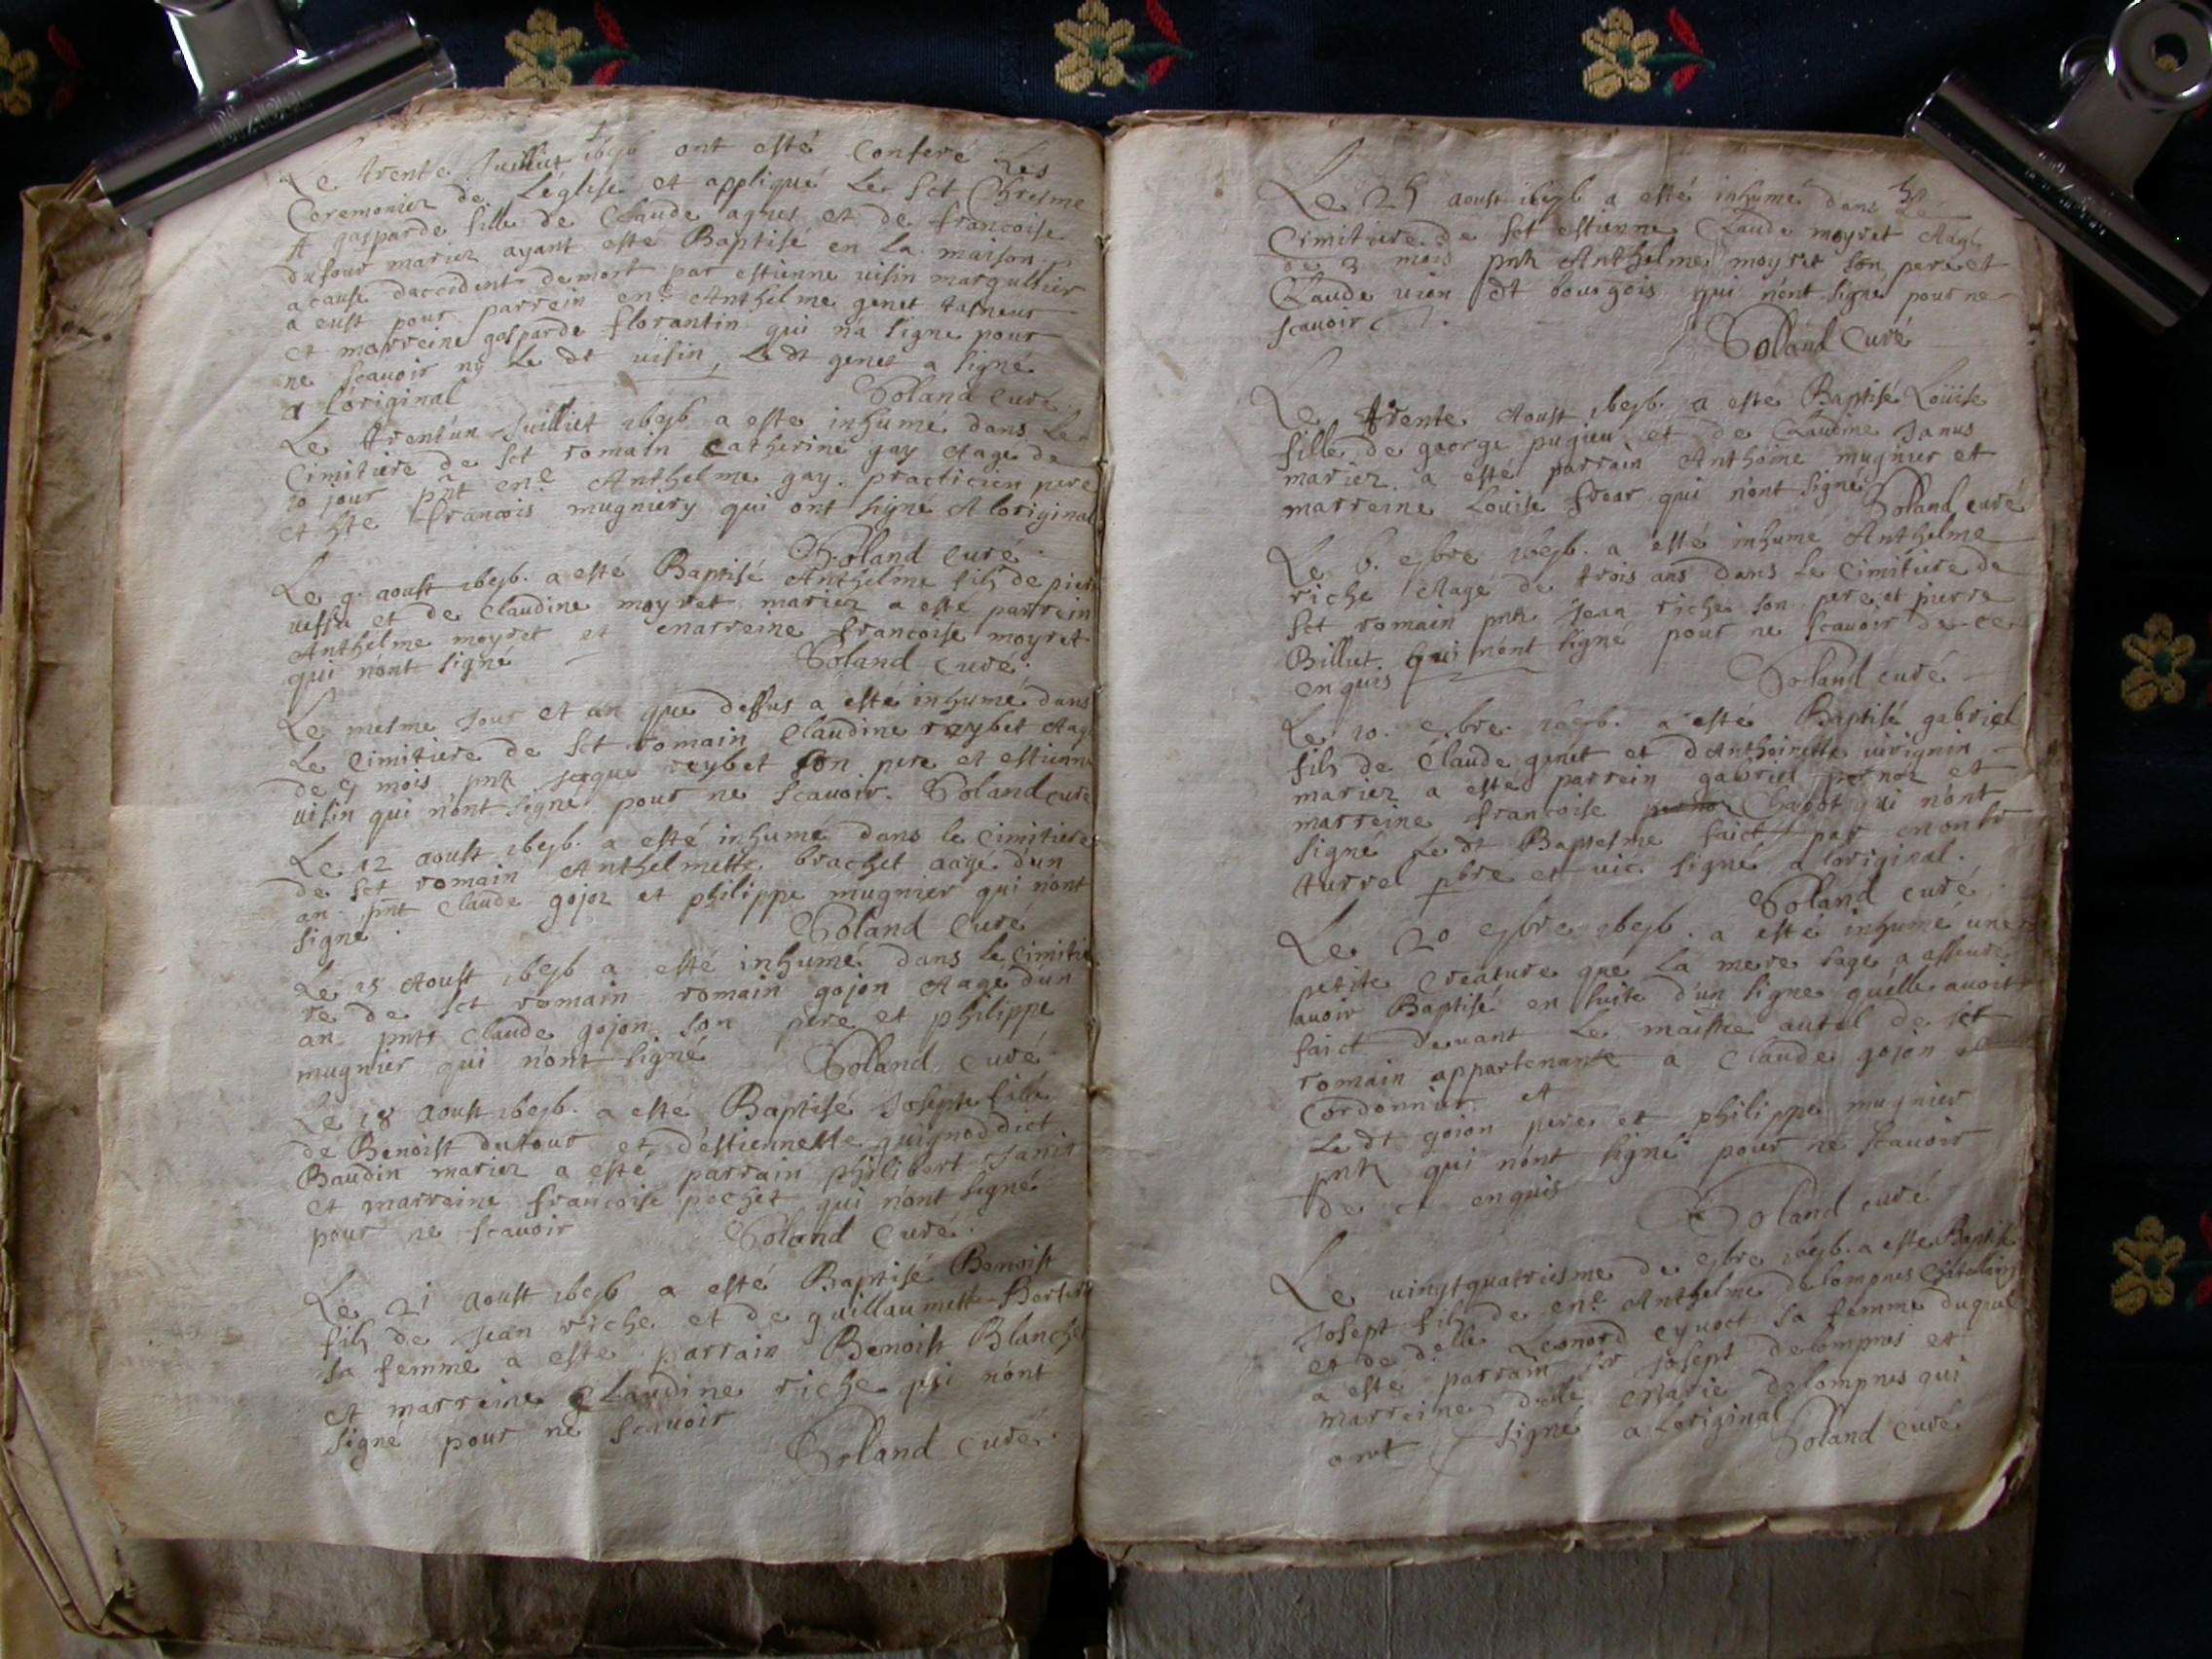 Le trente Juilliet ont esté conferé Les
Ceremonies de Léglise et appliqué Le sct Chresme
A gasparde fille de Claude agnus et de francoise
dufour mariez ayant esté Baptisé en La maison
a cause daccident demort par estienne visin margullier
a eust pour parrein Anthelme genet
et marreine gasparde florantin qui na signe pour
ne scavoir ny Le dt visin, Le dt genet a signé
a Loriginal
Soland curé
Le trent'un Juilliet a este inhumé dans Le
Cimitiere de sct romain Catherine gay Aage de
10 jour pnt Anthelme gay practicien pere
et francois mugniery qui ont signé A loriginal
Soland curé
Le 9 aoust a esté Baptisé Anthelme fils de
et de Claudine moyret mariez a esté parrein
Anthelme moyret et marreine francoise moyret
qui nont signé
Soland curé
Le mesme Jour et an que dessus a esté inhumé dans
Le Cimitiere de sct romain Claudine reybet Aag
de mois reybet son pere et estienne
visin qui nont signe pour ne scavoir. Soland curé
Le 12 aoust a esté inhumé dans le cimitiere
de sct romain Anthelmette brachet aage dun
an pnt Claude gojon et philippe mugnier qui nont
signe
Soland Curé
Le 15 Aoust a esté inhumé dans le cimitie
re de sct romain romain gojon Aagé d'un
an Claude gojon son pere et philippe
mugnier qui nont signé
Soland curé
Le 18 aoust a esté Baptisé Josepte fille
de Benoist dufour et destiennette guignod dict
Baudin mariez a esté parrain philibert Janin
et marreine francoise pochet qui nont signé
pour ne scavoir
Soland Curé
Le 21 aoust a esté Baptisé Benoist
fils de Jean riche et de guillaumette
sa femme a este parrain Benoist Blanche
et marreine Claudine riche qui nont
signé pour ne scavoir
Soland curé
Le aoust a esté inhumé dans Le
Cimitiere de sct estienne Claude moyret Aagé
de 3 mois Anthelme moyret son pere et
Claude dt bourgois qui nont signe pour ne
scavoir
Solland Curé
Le trente Aoust a esté Baptisé Loüise
fille de george pugieu et de Claudine Janus
mariez a esté parrain Anthoine mugnier et
marreine Louise qui nont signé
Soland curé
Le 6 a esté inhumé Anthelme
riche Aagé de trois ans dans Le Cimitiere de
sct romain Jean riche son pere et pierre
Billiet qui nont signé pour ne scavoir de ce
enquis
Soland curé
Le 10 a esté Baptisé gabriel
fils de Claude genet et d'Anthoinette virignin
mariez a esté parrein gabriel et
marreine francoise Chabot qui nont
signé Le dt Baptesme faict par
turrel pbre et vic. signé a loriginal.
Soland curé
Le 20 a esté inhumé une
petite Creature que La mere sage a asseuré
avoir Baptisé en suite d'un signe quélle avoit
faict devant Le maistre autel de sct
romain appartenante a Claude gojon
Cordonnier et
Le dt gojon pere et philippe mugnier
qui nont signé pour ne scavoir
de ce enquis
Soland curé
Le vingtquatriesme de a este Baptisé
Josept fils de Anthelme delompnes
et de Leonord sa femme duquel
a esté parrain Josept delompnes et
marreine Marie delompnes qui
ont signé a Loriginal
Soland Curé